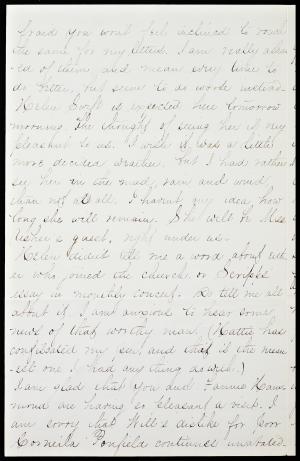 fraid you wont feel inclined to read
the same for my letters. I am really asha-
ed of them, and mean every time to
do better, but seem to do worse instead.
Helen Swift is expected here tomorrow
morning. The thought of seeing her is very
pleasant to us. I wish it was a little
more decided weather. but I had rather
see her in the mud, rain and wind
than not at all. I havnt any idea how
long she will remain. She will be Miss
Usher's guest, right under us.
Helen didnt tell me a word about eith-
er who joined the church, or Scripps
essay in monthly concert. Do tell me all
about it. I am anxious to hear some
news of that worthy man. (Hattie has
confiscated my pen, and that is the mean-
est one I had any thing as with.)
I am glad that you and Fannie Ham-
mond are having so pleasant a visit. I
am sorry that Will's dislike for poor
Cornelia Penfield continues unabated.